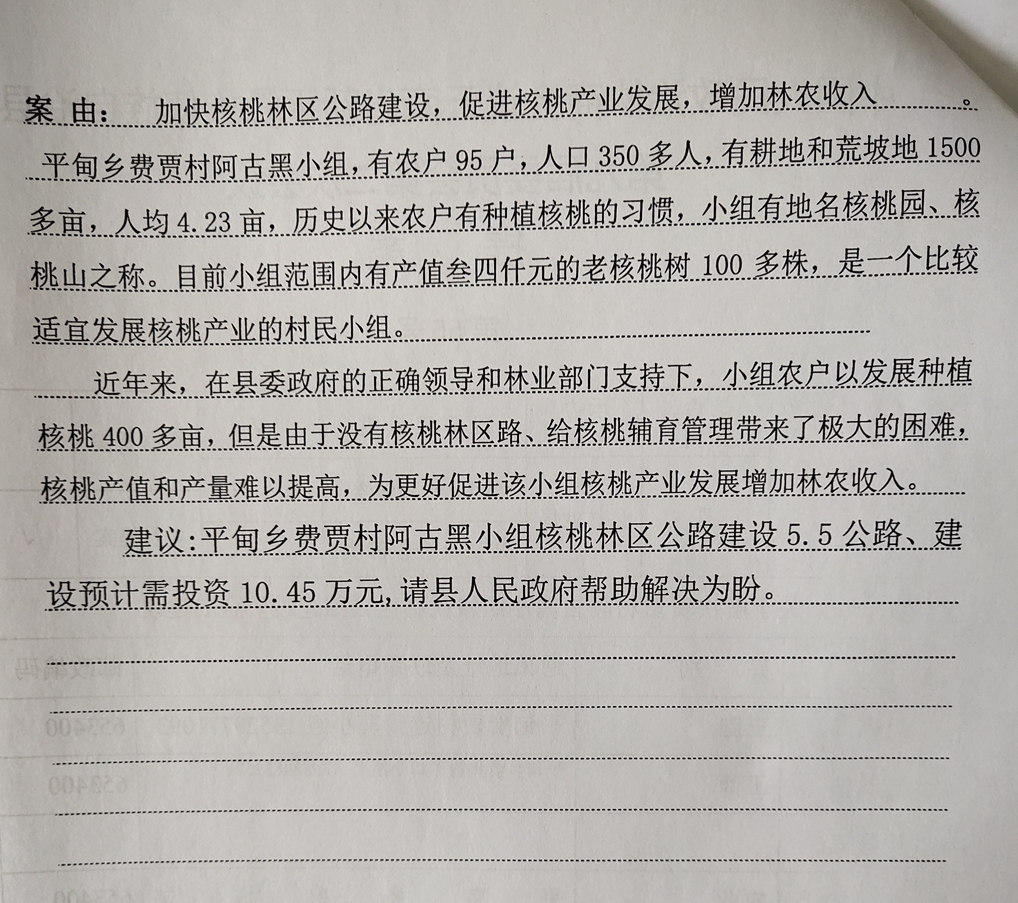 案 由： 加快核桃林区公路建设，促进核桃产业发展，增加林农收入 。
平甸乡费贾村阿古黑小组，有农户 95 户，人口 350 多人，有耕地和荒坡地 1500
多亩，人均 4.23 亩，历史以来农户有种植核桃的习惯，小组有地名核桃园、核
桃山之称。目前小组范围内有产值叁四仟元的老核桃树 100 多株，是一个比较
适宜发展核桃产业的村民小组。
近年来，在县委政府的正确领导和林业部门支持下，小组农户以发展种植
核桃 400 多亩，但是由于没有核桃林区路、给核桃辅育管理带来了极大的困难，
核桃产值和产量难以提高，为更好促进该小组核桃产业发展增加林农收入。
建议:平甸乡费贾村阿古黑小组核桃林区公路建设 5.5 公路、建
设预计需投资 10.45 万元,请县人民政府帮助解决为盼。
邮政编码
653400
653400